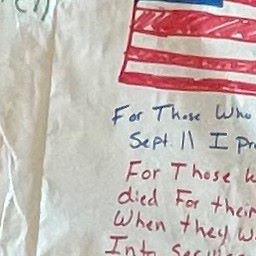 For Those Who
Sept 11 I
For Those
died For their
When they
Into